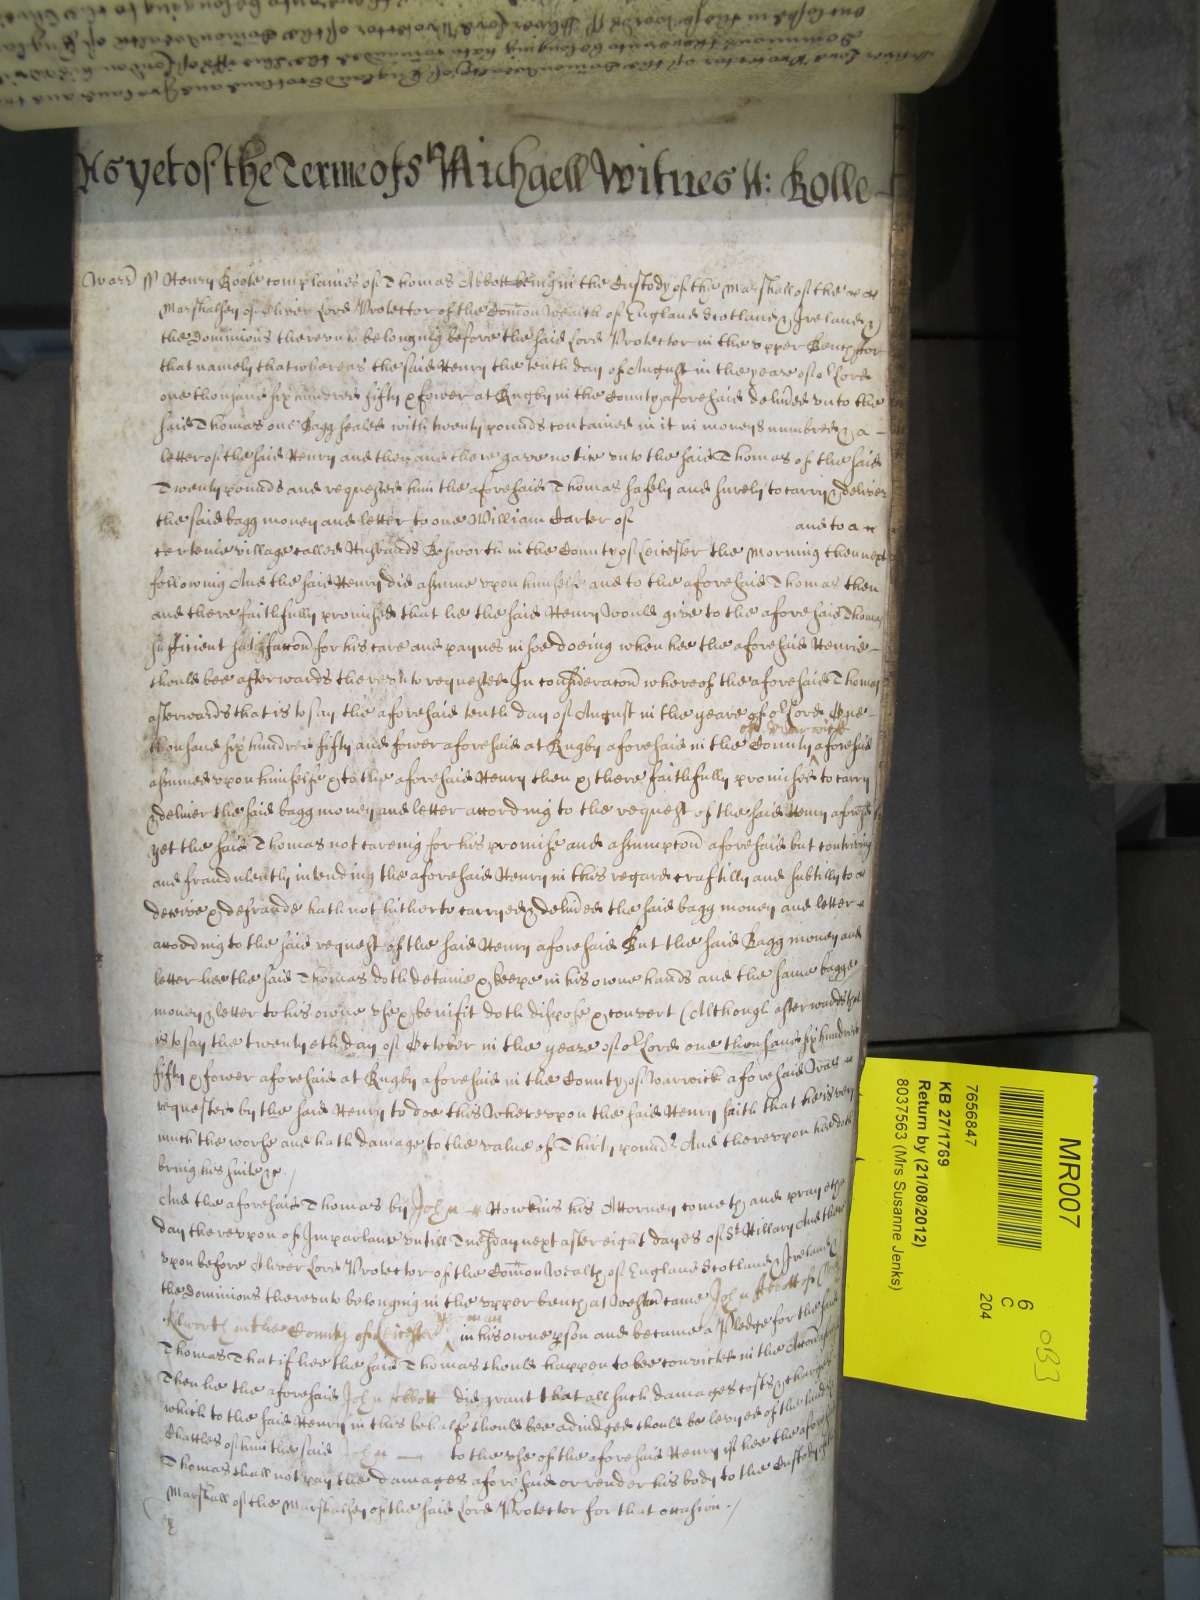 As yet of the Terme of St Michaell Witnes H: Rolle
Warr ss Henry Koote complaines of Thomas Abbott being in the Custody of the Marshall of the
Marshalsey of Oliver Lord Protector of the Comon Wealth of England Scotland & Ireland &
the Dominions thereunto belonging before the said Lord Protector in the upper Bench for
that namely that whereas the said Henry the tenth day of August in the yeare of or Lord
one thousand six hundred fifty & fower at Rugby in the County aforesaid deliued unto the
said Thomas one Bagg sealed with twenty pounds contained in it in moneys numbred & a
letter of the said Henry and then and there gave notice unto the said Thomas of the said
Twenty pounds and requested him the aforesaid Thomas safely and surely to carry & deliver
the said bagg money and letter to one William Carter of and to a
certeine village called Husbands Bosworth in the County of Leicester the morning then next
following And the said Henry did assume upon himselfe and to the aforesaid Thomas then
and there faithfully promised that he the said Henry would give to the aforesaid Thomas
sufficient satisfaccon for his care and paynes in soe doeing when hee the aforesaid Henrie
should bee afterwards thereunto requested In consideracon whereof the aforesaid Thomas
afterwards that is to say the aforesaid tenth day of August in the yeare of or Lord One
thousand six hundred fifty and fower aforesaid at Rugby aforesaid in the County of Warwick aforesaid
assumed upon himselfe & to the aforesaid Henry then & there faithfully promised to carry
& deliver the said bagg money and letter according to the request of the said Henry aforesd
yet the said Thomas not careing for his promise and assumpcon aforesaid but contriving
and fraudulently intending the aforesaid Henry in this regard craftilly and subtilly to
deceive & defraude hath not hitherto carryed & deliued the said bagg money and letter
according to the said request of the said Henry aforesaid But the said Bagg money and
letter hee the said Thomas doth detaine & keepe in his owne hands and the same bagge
money & letter to his owne use & benifit doth dispose & convert (Although afterwards that
is to say the twentyeth day of October in the yeare of or Lord one thousand six hundred
fifty & fower aforesaid at Rugby aforesaid in the County of Warwick aforesaid was
requested by the said Henry to doe this Whereupon the said Henry saith that he is very
much the worse and hath damage to the value of Thirty pounds And thereupon hee doth
bring his suite &c
And the aforesaid Thomas by John Howkins his Attorney cometh and prayeth
day thereupon of Imparlance untill Tuesday next after eight dayes of St Hillary And there
upon before Oliver Lord Protector of the Comon Wealth of England Scotland & Ireland &
the dominions thereunto belonging in the upper bench at Westm came John Abbott of
Kilworth in the County of Leicester yeoman in his owne pson and became a Pledge for the said
Thomas That if hee the said Thomas should happen to bee convicted in the Accon aforesaid
Then he the aforesaid John Abbott did grant that all such damages costs & charges
which to the said Henry in this behalfe should bee adiudged should be levyed of the lands &
Chattles of him the said John to the use of the aforesaid Henry if hee the aforesaid
Thomas shall not pay the damages aforesaid or render his body to the Custody of the
Marshall of the Marshalsey of the said Lord Protector for that occasion
MR007
7656847
KB 27/1769
Return by (21/08/2012)
8037563 (Mrs Susanne Jenks)
6
C
204
0B3